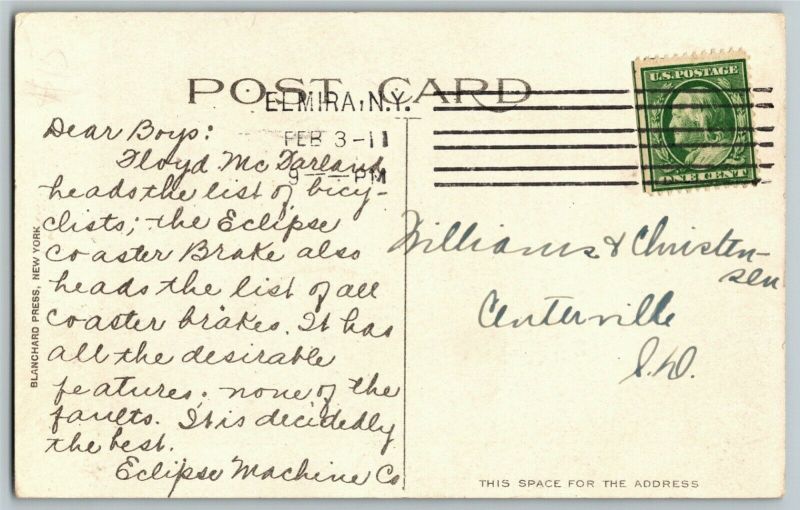 POST CARD
ELMIRA, N.Y.
FEB 3-11
9 — PM
U.S. POSTAGE
ONE CENT
Dear Boys:
Floyd McFarland
heads the list of bicy-
clists; the Eclipse
Coaster Brake also
heads the list of all
coaster brakes. It has
all the desirable
features; none of the
faults. It is decidedly
the best.
Eclipse Machine Co
Williams & Christen-
sen
Centerville
S.D.
BLANCHARD PRESS, NEW YORK
THIS SPACE FOR THE ADDRESS